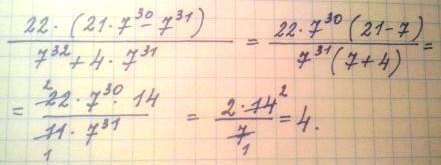 22 · (21 · 7^30 - 7^31) / (7^32 + 4 · 7^31) = 22 · 7^30 (21 - 7) / (7^31 (7 + 4)) =
= 2 22 · 7^30 · 14 / (11 · 7^31) 1 = 2 · 14 2 / 7 1 = 4.